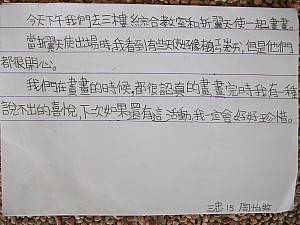 今天下午我們去三樓綜合教室和折翼天使一起畫畫。
當折翼天使出場時我看到有些天使好像
但是他們
都很開心。
我們在畫畫的時候,都很認真的畫畫完時我有一種
說不出的喜悅,下次如果還有這活動,我一定會好好珍惜。
三忠15 周怡